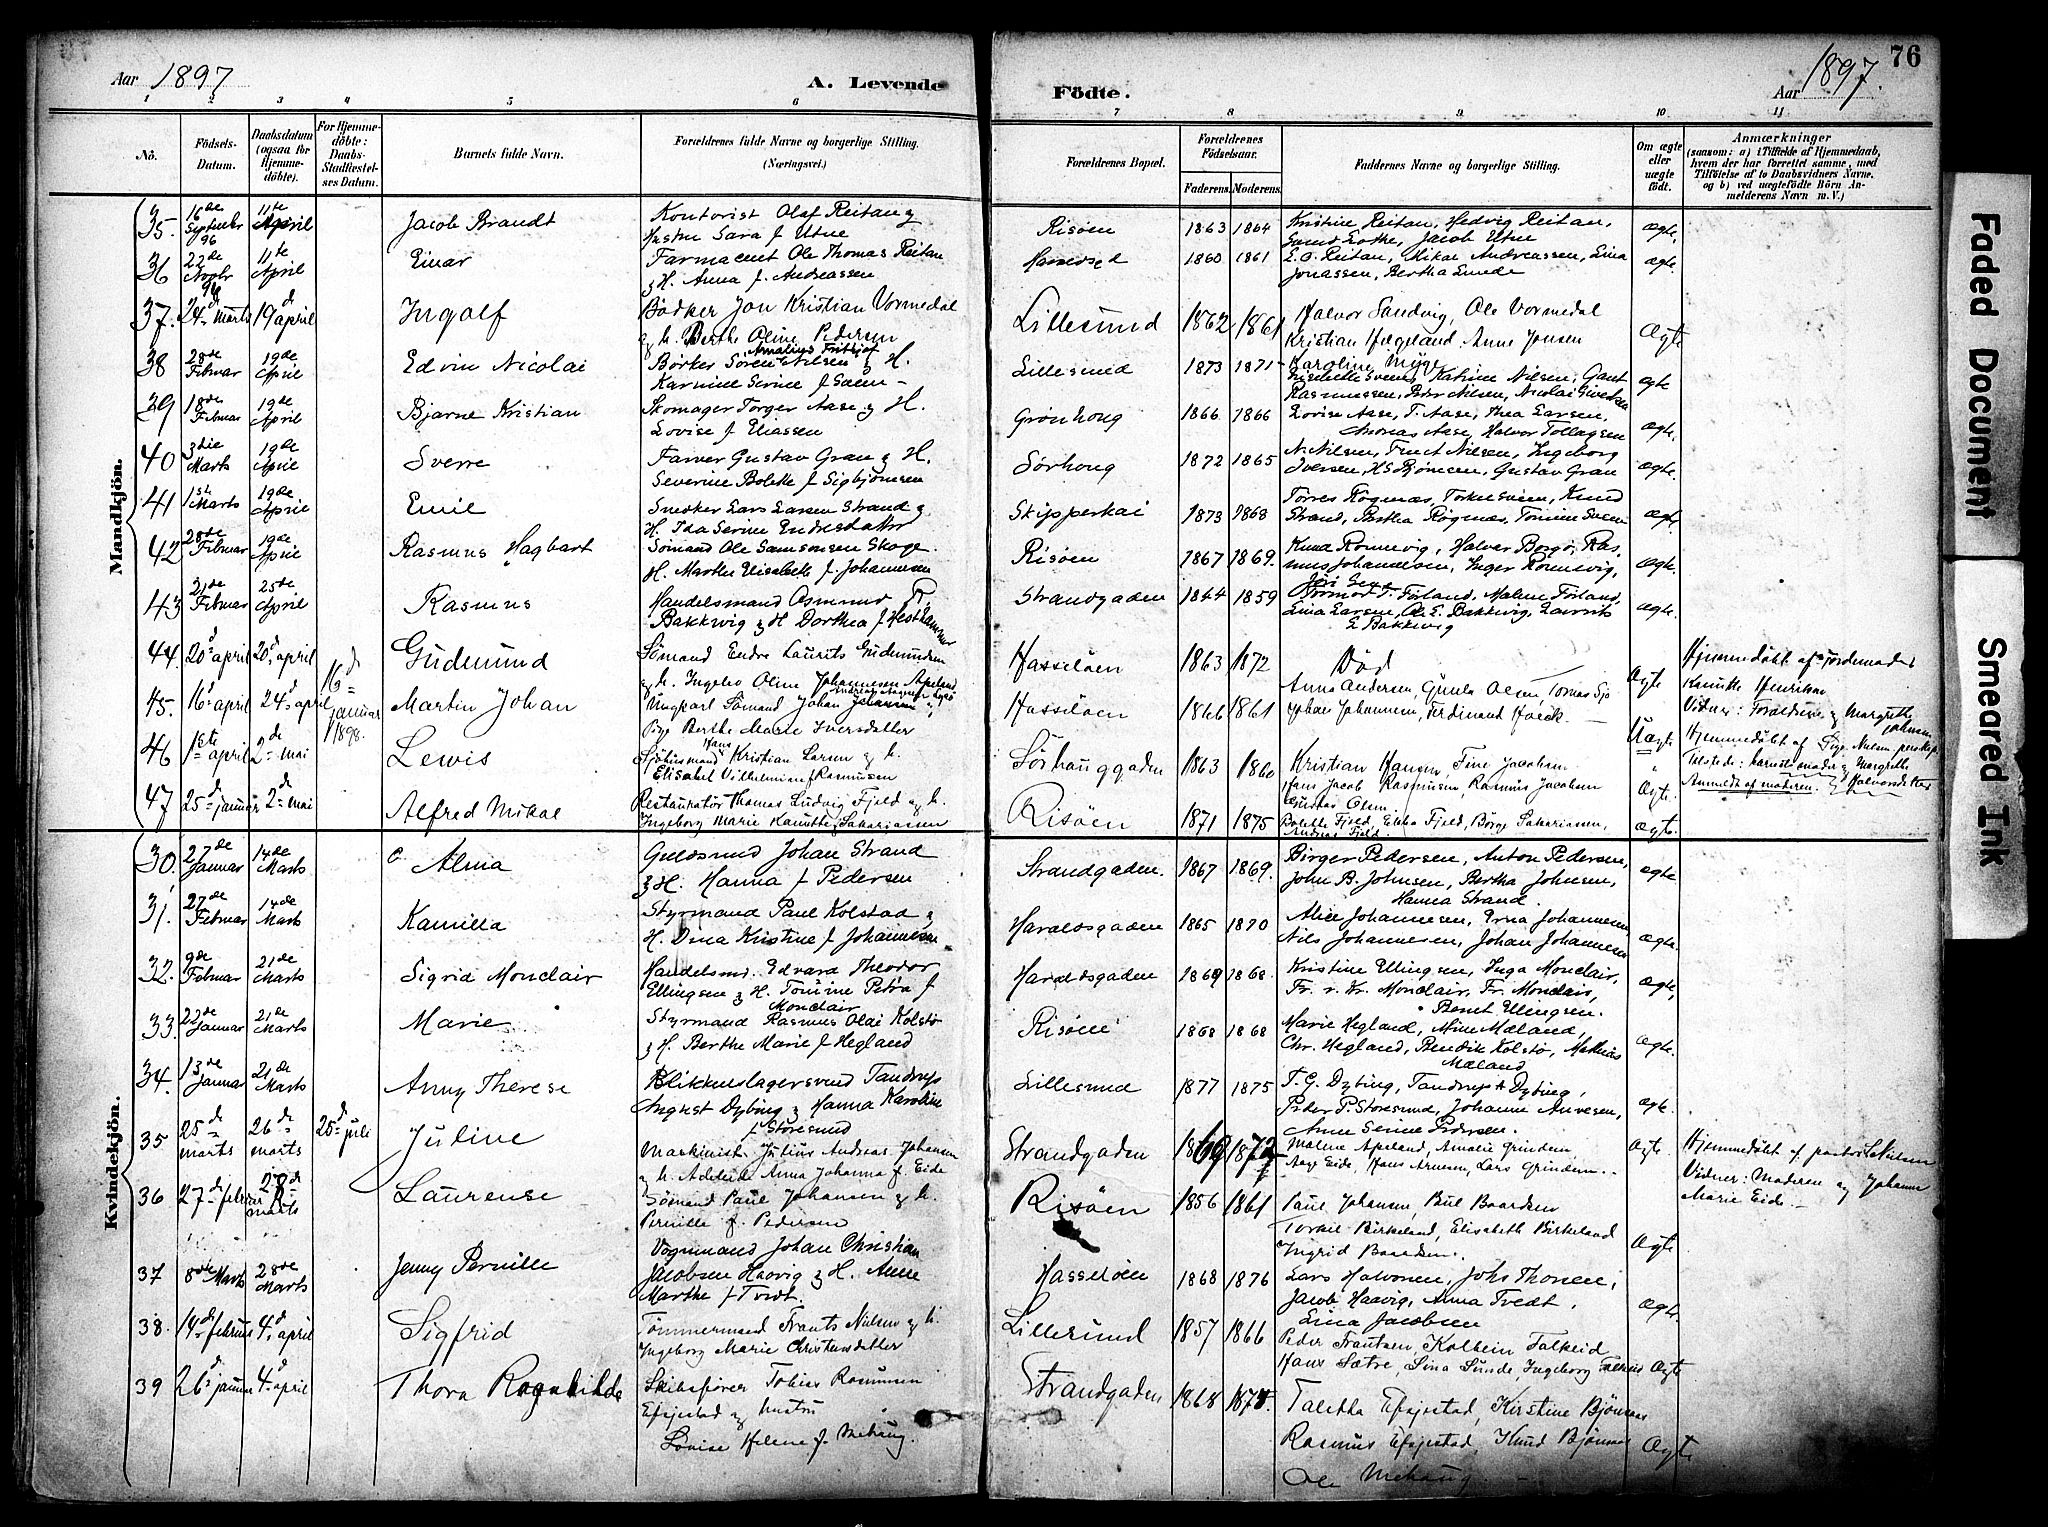 Aar 1897
A. Levende
Födte.
Aar 1897.
76
1 2 3 4 5 6 7 8 9 10 11
No.
Födsels-
Datum.
Daabsdatum
(ogsaa for
Hjemme-
döbte).
For Hjemme-
döbte:
Daabs-
Stadfæstel-
ses Datum.
Barnets fulde Navn.
Forældrenes fulde Navne og borgerlige Stilling.
(Næringsvei.)
Forældrenes Bopæl.
Forældrenes
Födselsaar.
Faderens. Moderens.
Faddernes Navne og borgerlige Stilling.
Om ægte
eller
uægte
födt.
Anmærkninger
(saasom: a) i Tilfælde af Hjemmedaab,
hvem der har forrettet samme, med
Tilföielse af to Daabsvidners Navne,
og b) ved uægtefödte Börn An-
melderens Navn m. V.)
Mandkjön.
35. 16de September 96 11te April Jacob Brandt Kontorist Olaf Reitan &
Hustru Sara f Utne Risöen 1863 1864 Kristine Reitan, Hedvig Reitan,
Jacob Utne ægte.
36 22de Novbr 96 11te April Einar Farmaceut Ole Thomas Reitan
& H. Anna f. Andreassen 1860 1861 E.O. Reitan, Mikal Andreassen, Lina
Jonassen, Bertha Sunde ægte.
37. 24de Marts 19d april Ingolf Bödker Jon Kristian Vormedal
og h. Berthe Oline Pedersen Lillesund 1862 1861 Halvor Sandvig, Ole Vormedal
Kristian Hegeland Anne Jensen Ægte
38 28de Februar 19de April Edvin Nicolai Amalius Fritjof
Börker Sören Nilsen & H.
Karnine Serine f Saen Lillesund 1873 1871 Karoline Myge
Katrine Nilsen, Gant
Rasmussen, Peder Nilsen, Nicolai ægte
39 18de Februar 19de April Bjarne Kristian Skomager Torger Aase & H.
Lovise f Eliassen Grönhoug 1866 1866 Lovise Aase, T. Aase, Thea Larsen,
Andreas Aase, Halvor Tollagsen ægte.
40 3die Marts 19de April Sverre Farver Gustav Gran & H.
Severine Bolette f Sigbjörnsen Sörhoug 1872 1865 N. Nilsen, Nilsen, Ingeborg
Iversen, H.S. Björnsen, Gustav Gran ægte.
41 1ste Marts 19de April Emil Snedker Lars Larsen Strand &
H. Ida Serine Endresdatter Skipperkai 1873 1868 Törres Rögenæs, Knud
Strand, Bertha Rögenæs, Tomine ægte
42 28de Februar 19de April Rasmus Hagbart Sömand Ole Samsonsen Skoge
H. Marthe Elisabeth f. Johannesen Risöen 1867 1869. Knud Rönnevig, Halvor Borgö, Ras-
mus Johannesen, Inger Rönnevig, ægte.
43 21de Februar 25de April Rasmus Handelsmand Osmund T.
Bakkevig & H Dorthea f Vesthammer Strandgaden 1844 1859 T. Förland, Malene Förland,
Lina Larsen, Ole E. Bakkevig, Laurits
E Bakkevig ægte.
44. 20d april 20d april Gudmund Sömand Endre Laurits Gudmundsen
og h. Ingebor Oline Johannesen Apeland Hasselöen 1863 1872 Död Ægte Hjemmedöbt af Jordemoder
Vidner: Forældrene & Margrethe
Johnsen
45. 16d april 24d april 16d januar 1898. Martin Johan Ungkarl Sömand Johan
Pige Berthe Marie Iversdatter Hasselöen 1866 1861 Anna Andersen, Gunla Olsen Tomas
Johan Johannesen, Ferdinand Uægte Hjemmedöbt af
Tilstede: barnets moder & Margrethe
Anmeldt af moderen. Halvorsdatter
46 1ste april 2d mai Lewis Hans
Kristian Larsen & h.
Elisabet Vilhelmine f Rasmusen Sörhauggaden 1863 1860 Kristian Hansen, Tine Jacobsen
Hans Jacob Rasmusen, Rasmus Jacobsen
Gustav Olsen Ægte.
47 25d januar 2d mai Alfred Mikal Restauratör Thomas Ludvig Fjeld og h.
Ingeborg Marie Kanutte Sakariassen Risöen 1871 1875 Bolette Fjeld, Fjeld, Börge Sakariassen,
Andreas Fjeld. Ægte
Kvindekjön.
30. 27de Januar 14de Marts Alma Guldsmed Johan Strand
& H. Hanna f Pedersen Strandgaden. 1867 1869. Birger Pedersen, Anton Pedersen,
John B. Johnsen, Bertha Johnsen,
Hanna Strand. ægte
31. 27de Februar 14de Marts Kamilla Styrmand Paul Kolstad &
H. Dina Kristine f Johannesen Haraldsgaden 1865 1870 Alice Johannesen, Erna Johannesen
Nils Johannesen, Johan Johannesen ægte.
32. 9de Februar 21de Marts Sigrid Monclair Handelsmd. Edvard Theodor
Ellingsen & H. Tomine Petra f
Monclair Haraldsgaden 1869 1868. Kristine Ellingsen, Inga Monclair,
Fr. v. Kr. Monclair, Fr. Monclair,
Bernt Ellingsen. ægte,
33. 22de Januar 21de Marts Marie Styrmand Rasmus Olai Kolstö
& H. Berthe Marie f Hegland Risöen 1868 1868 Marie Hegland, Mine Mæland,
Chr. Hegland, Bendik Kolstö, Mathias
Mæland ægte.
34. 13de Januar 21de Marts Anny Therese Blikkenslagersvend Tandrup
August Dybing & Hanna Karoline
f Storesund Lillesund 1877 1875 T.G. Dybing, Tandrup A Dybing,
Peder P. Storesund, Johanne Anvesen,
Anne Serine Pedersen. ægte.
35 25de marts 26de marts 25d juli Juline Maskinist Julius Andreas Johansen
og h. Adelaide Anna Johanna f. Eide Strandgaden 1869 1872 Malene Apeland, Amalie Grindem
Aage Eide, Hans Arnesen, Lars Grindem. Ægte Hjemmedöbt af pastor Nielsen
Vidner: Moderen og Johanne
Marie Eide.
36 27d februar 28d marts Laurense Sömand Paul Johansen & h.
Pernille f. Pedersen Risöen 1856 1861 Paul Johansen, Paul Baardsen
Torkel Birkeland, Elisabeth Birkeland
Ingrid Baardsen. Ægte
37 8de Marts 28de Marts Jenny Pernille Vognmand Johan Christian
Jacobsen Haavig & H. Anne
Marthe f Tvedt. Hasselöen 1868 1876 Lars Halvorsen, Johs Thorsen,
Jacob Haavig, Anna Tvedt,
Lina Jacobsen ægte.
38. 14de februar 4d april Sigfrid Tömmermand Frants Nielsen & h.
Ingeborg Marie Christensdatter Lillesund 1857 1866 Peder Frantsen, Kolbein Falkeid
Hans Sætre, Sina Sunde, Ingeborg Falkeid Ægte
39 26d januar 4d april Thora Ragnhilde Skibsförer Tobias Rasmusen
Efjestad og hustru
Lovise Helene f. Mehaug. Strandgaden 1868 1878. Talitha Efjestad, Kirstine Björnsen
Rasmus Efjestad, Knud Björnsen
Ole Mehaug. Ægte
Faded Document
Smeared Ink